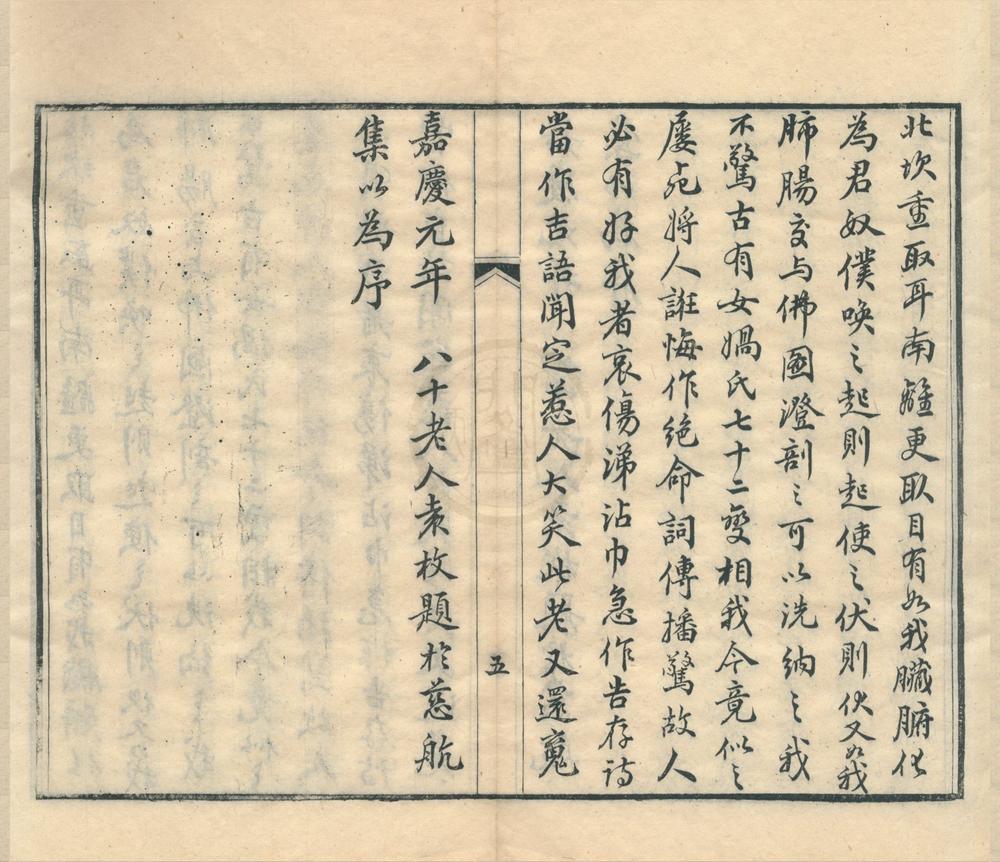 北坎重取耳南離更取目有如我臟腑化
為君奴僕喚之起則起使之伏則伏又如我
肺腸交与佛國澄剖之可以洗納之我
不驚古有女媧氏七十二變相我今竟似之
屢死將人誑悔作絕命詞傳播驚故人
必有好我者哀傷涕沾巾急作告存詩
當作吉語聞定惹人大笑此老又還魂
嘉慶元年 八十老人袁枚題於慈航
集以為序
五